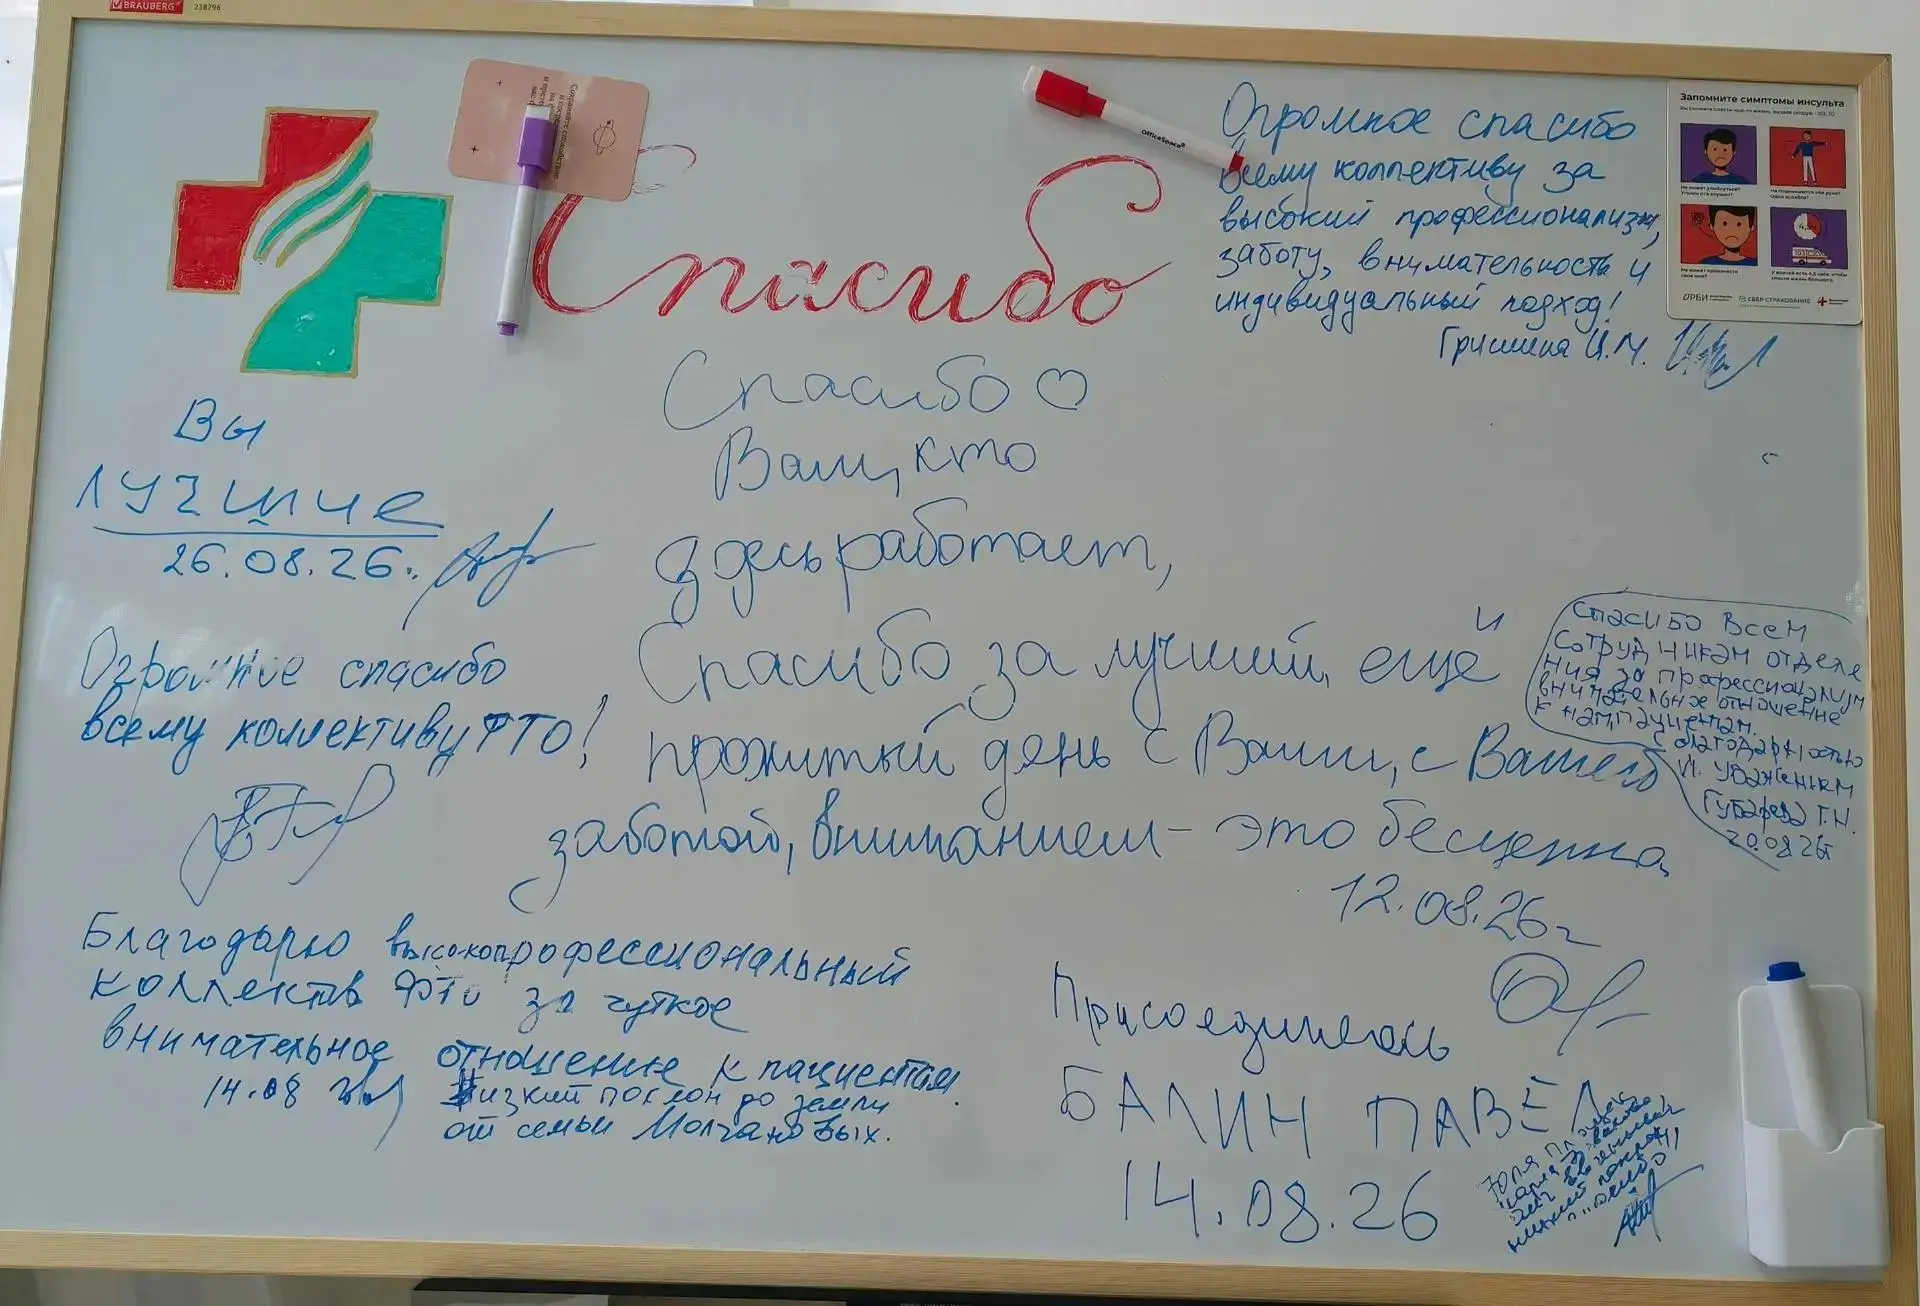 BRAUBERG
238796
Спасибо
OfficeSpace
Огромное спасибо
всему коллективу за
высокий профессионализм,
заботу, внимательность и
индивидуальный подход!
Гришина И.М.
Запомните симптомы инсульта
Не может улыбнуться?
Не поднимаются обе руки?
Одна ослабла?
Не может произнести
свое имя?
У врачей есть 4,5 часа, чтобы
спасти жизнь больного
ОРБИ
СБЕР СТРАХОВАНИЕ
Спасибо
Вам, кто
здесь работает,
Спасибо за лучший, ещё и
прожитый день с Вами, с Вашей
заботой, вниманием – это бесценно
12.08.26г
Вы
ЛУЧШИЕ
26.08.26.
Огромное спасибо
всему коллективу ФТО!
Благодарю высокопрофессиональный
коллектив ФТО за чуткое
внимательное отношение к пациентам.
14.08
Низкий поклон до земли
от семьи Молчановых.
Спасибо всем
сотрудникам отделе
ния за профессионализм
внимательное отношение
к нам, пациентам.
с благодарностью
и уважением
Губарева Г.Н.
20.08.26г
Присоединяюсь
БАЛИН ПАВЕЛ
14.08.26
Юля
низкий поклон